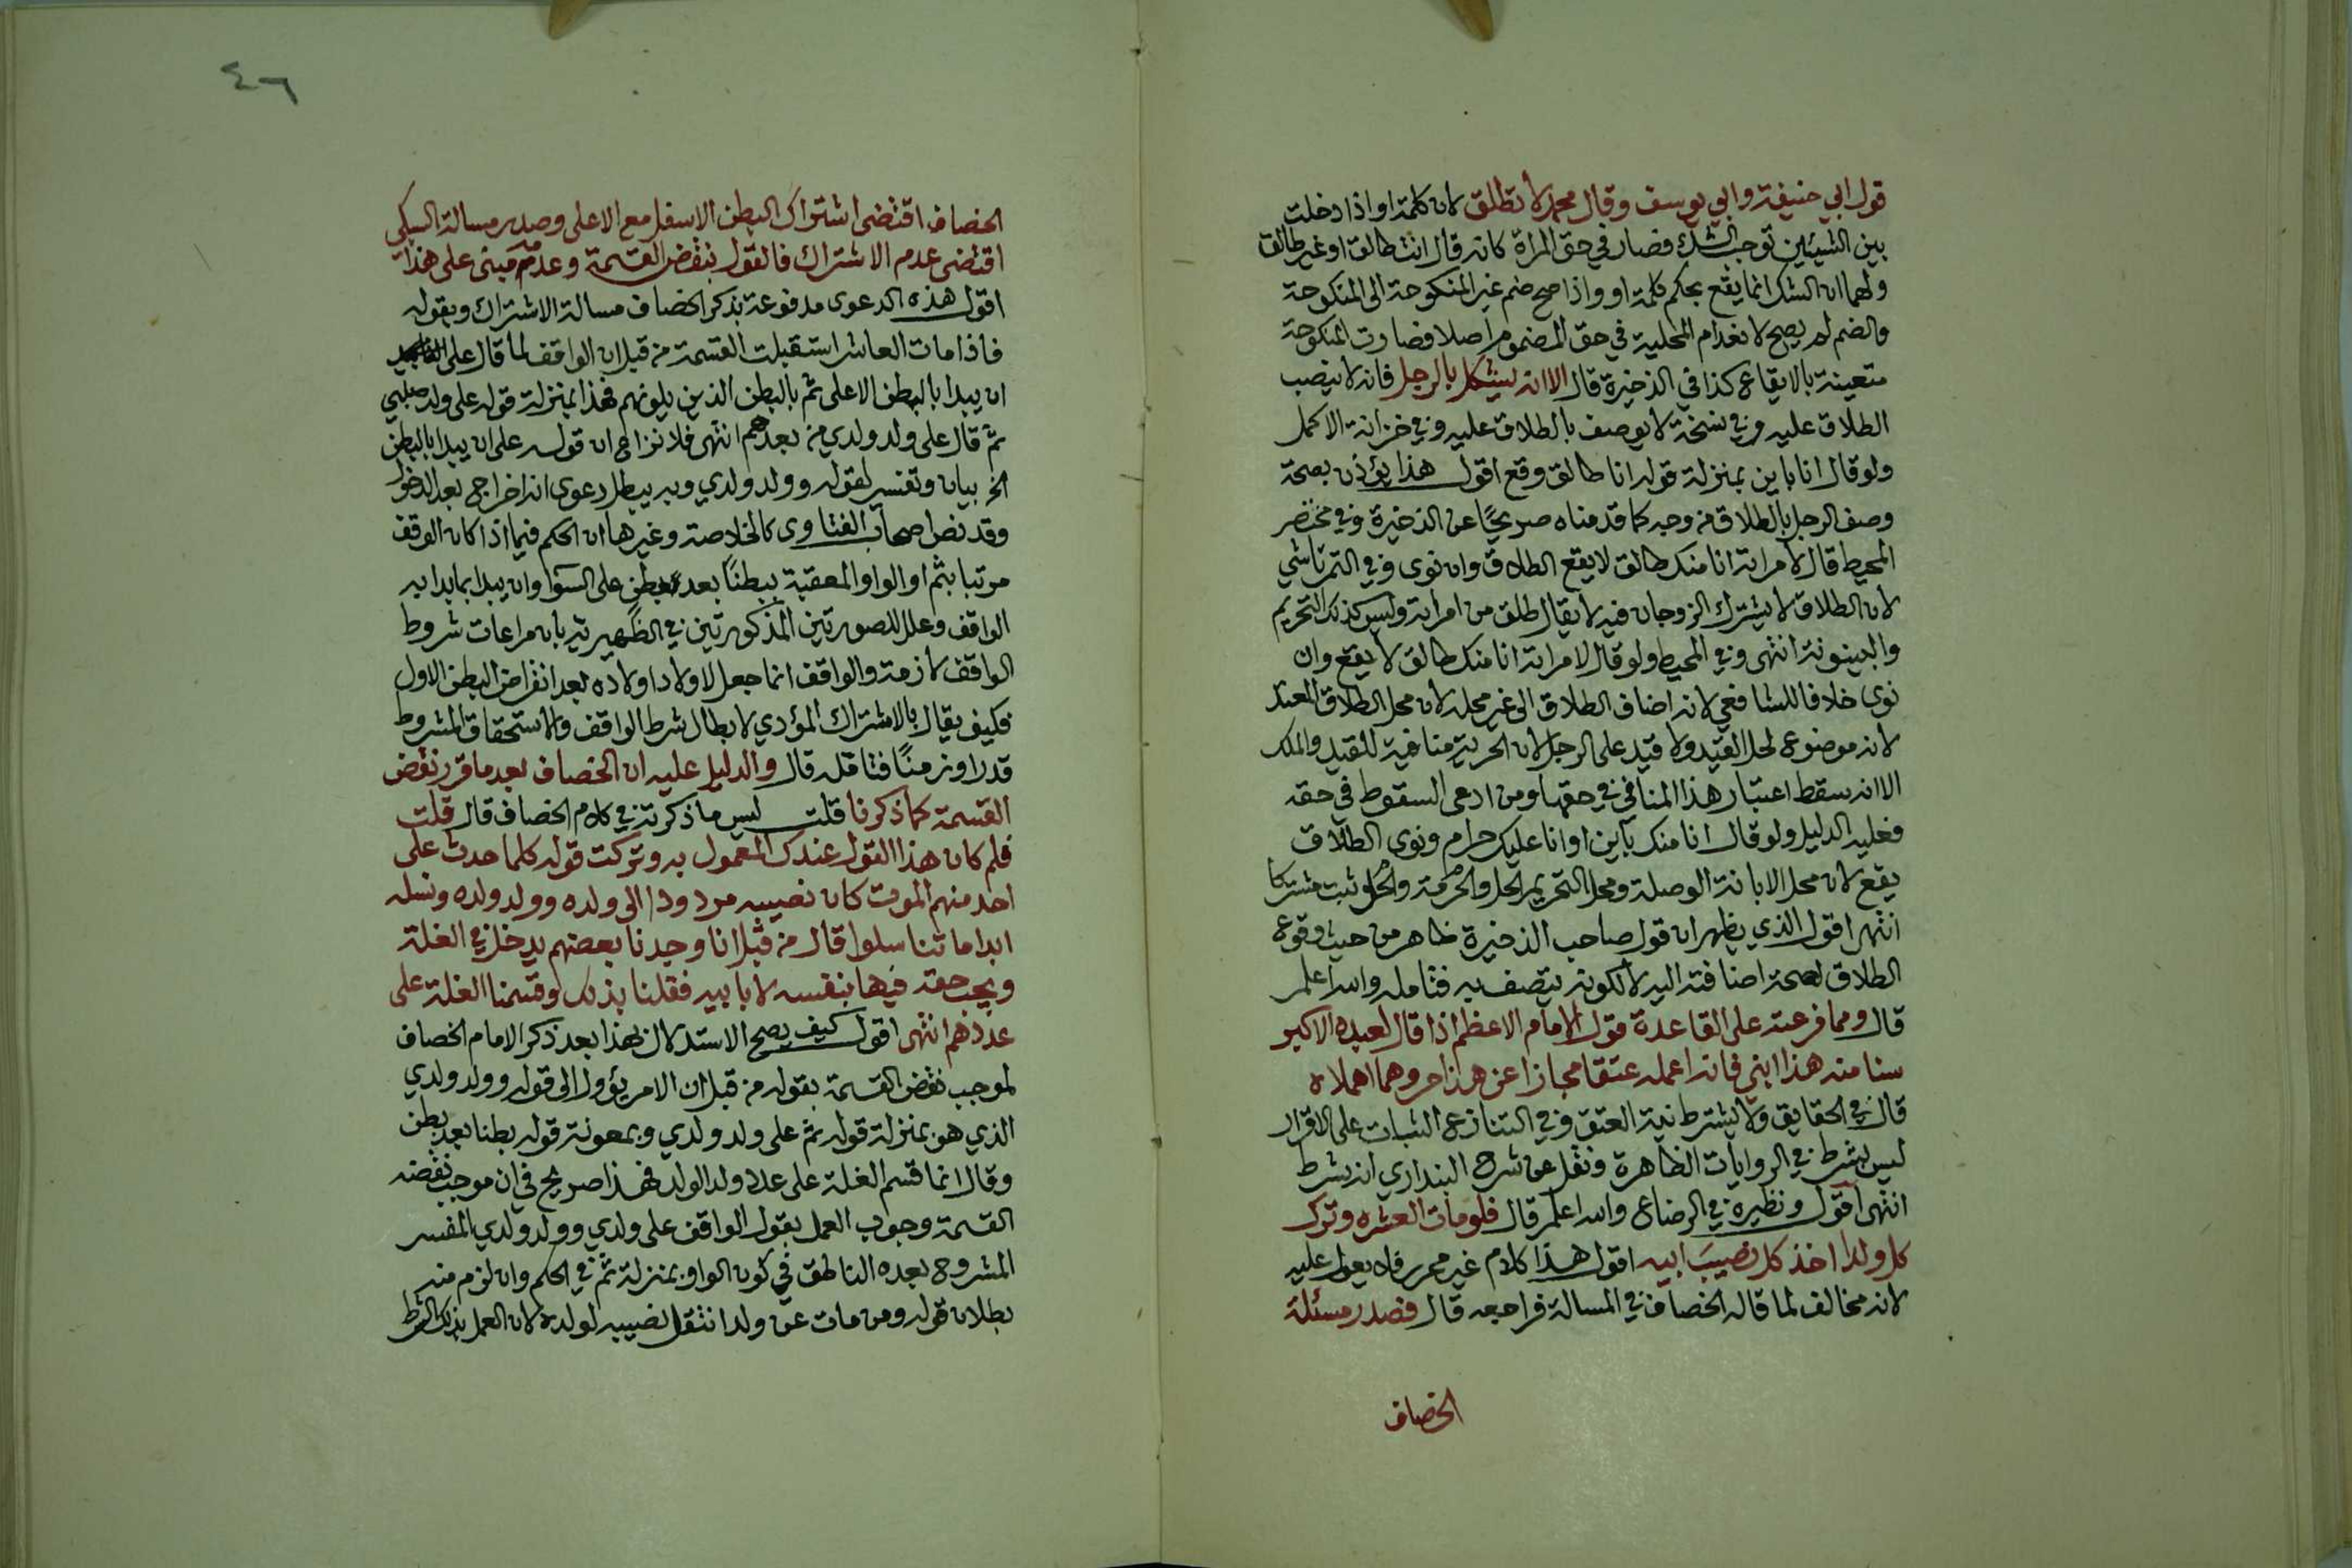 قول ابي حنيفة وابي يوسف وقال محمد لا تطلق لان كلمة او اذا دخلت
بين الشيئين توجب الشك فصار في حق المراة كانه قال انت طالق او غير طالق
ولهما ان الشك انما يقع بحكم كلمة او واذا صح ضم غير المنكوحة الى المنكوحة
والضم لم يصح لانعدام المحلية في حق المضموم اصلا فصارت المنكوحة
متعينة بالايقاع كذا في الذخيرة قال الا انه يشكل بالرجل فانه لا ينصب
الطلاق عليه وفي نسخة لا يوصف بالطلاق عليه وفي خزانة الاكمل
ولو قال انا باين بمنزلة قوله انا طالق وقع اقول هذا يؤذن بصحة
وصف الرجل بالطلاق من وجه كما قدمناه صريحًا عن الذخيرة وفي مختصر
المحيط قال لامراته انا منك طالق لا يقع الطلاق وان نوى وفي التمرتاشي
لان الطلاق لا يشترك الزوجان فيه لا يقال طلق من امراته وليس كذلك التحريم
والبينونة انتهى وفي المحيط ولو قال لامراته انا منك طالق لا يقع وان
نوى خلافا للشافعي لانه اضاف الطلاق الى غير محله لان محل الطلاق المقيد
لانه موضوع لحل القيد ولا قيد على الرجل لان الحرية منافية للقيد والملك
الا انه سقط اعتبار هذا المنافي في حقها ومن ادعى السقوط في حقه
فعليه الدليل ولو قال انا منك بآين او انا عليك حرام ونوى الطلاق
يقع لان محل الابانة الوصلة ومحل التحريم الحل والحرمة والحل ثبت مشتركا
انتهى اقول الذي يظهر ان قول صاحب الذخيرة ظاهر من حيث وقوع
الطلاق لصحة اضافته اليه لا لكونه يتصف به فتامله والله اعلم
قال ومما فرعته على القاعدة قول الامام الاعظم اذا قال لعبده الاكبر
سنا منه هذا ابني فانه اعمله عتقا مجازا عن هذا حر وهما اهملاه
قال في الحقايق ولا يشترط نية العتق وفي التنازع الثبات على الاقرار
ليس بشرط في الروايات الظاهرة ونقل عن شرح البنداري انه شرط
انتهى اقول ونظيره في الرضاع والله اعلم قال فلو مات العشره وترك
كل ولدا اخذ كل نصيبَ ابيه اقول هذا كلام غير محرر فلا يعول عليه
لانه مخالف لما قاله الخصاف في المسالة فراجعه قال فصدر مسئلة
الخصاف
٤٦
الخصاف اقتضى اشتراك البطن الاسفل مع الاعلى وصدر مسالة السبكي
اقتضى عدم الاشتراك فالقول بنقض القسمة وعدمه مبنى على هذا
اقول هذه الدعوى مدفوعة بذكر الخصاف مسالة الاشتراك وبقوله
فاذا مات العاشر استقبلت القسمة من قبل ان الواقف لما قال على
ان يبدا بالبطن الاعلى ثم بالبطن الذين يلونهم فهذا بمنزلة قوله على ولد صلبي
ثم قال على ولد ولدي من بعدهم انتهى فلا نزاع ان قوله على ان يبدا بالبطن
الخ بيان وتفسير لقوله وولد ولدي وبه يبطل دعوى انه اخراج بعد الدخول
وقد نص اصحاب الفتاوى كالخلاصة وغيرها ان الحكم فيما اذا كان الوقف
مرتبا بثم او الواو المعقبة ببطنًا بعد بطن على السوآ وان يبدا بما بدا به
الواقف وعلل للصورتين المذكورتين في الظهيرية بان مراعات شروط
الواقف لازمة والواقف انما جعل لاولاد اولاده بعد انقراض البطن الاول
فكيف يقال بالاشتراك المؤدي لابطال شرط الواقف والاستحقاق المشروط
قدرا وزمنًا فتامله قال والدليل عليه ان الخصاف بعد ما قرر نقض
القسمة كما ذكرنا قلت ليس ما ذكرته في كلام الخصاف قال قلت
فلم كان هذا القول عندك المعمول به وتركت قوله كلما حدث على
احد منهم الموت كان نصيبه مردودا الى ولده وولد ولده ونسله
ابدا ما تناسلوا قال من قبل انا وجدنا بعضهم يدخل في الغلة
ويجب حقه فيها بنفسه لا بابيه فقلنا بذلك وقسمنا الغلة على
عددهم انتهى اقول كيف يصح الاستدلال بهذا بعد ذكر الامام الخصاف
لموجب نقض القسمة بقوله من قبل ان الامر يؤول الى قوله وولد ولدي
الذي هو بمنزلة قوله ثم على ولد ولدي وبمعونة قوله بطنا بعد بطن
وقال انما قسم الغلة على عدد ولد الولد فهذا صريح في ان موجب نقضه
القسمة وجوب العمل بقول الواقف على ولدي وولد ولدي المفسر
المشروح بعده الناطق في كون الواو بمنزلة ثم في الحكم وان لزم منه
بطلان قوله ومن مات عن ولد انتقل نصيبه لولده لان العمل بذلك الشرط